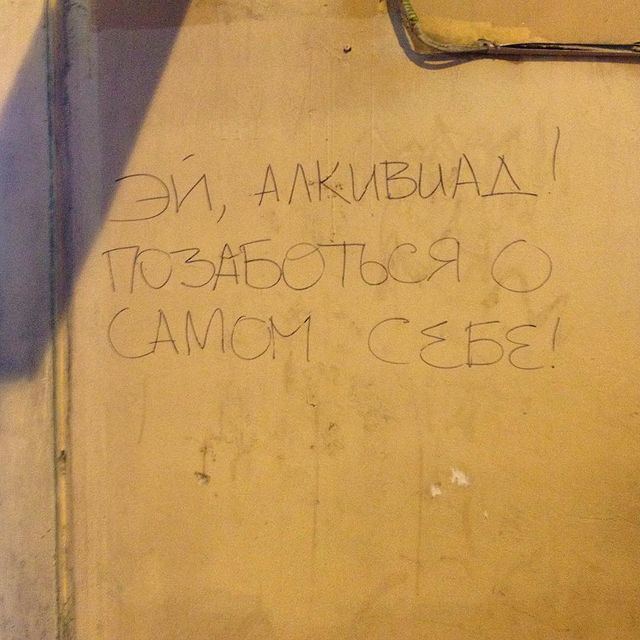 ЭЙ, АЛКИВИАД!
ПОЗАБОТЬСЯ О
САМОМ СЕБЕ!